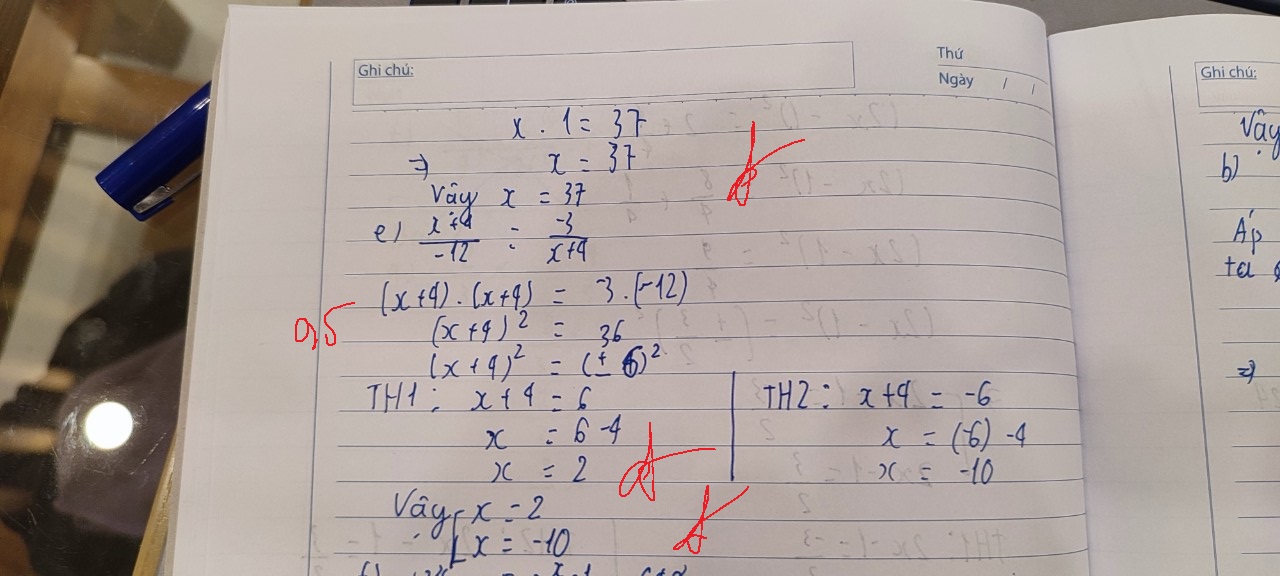 Thứ
Ghi chú:
Ngày / /
x . 1 = 37
=> x = 37
Vậy x = 37
e) x+4/-12 = -3/x+4
(x+4).(x+4) = 3.(-12)
0,5
(x+4)² = 36
(x+4)² = (± 6)²
TH1: x+4 = 6
x = 6-4
x = 2
TH2: x+4 = -6
x = (-6) -4
x = -10
Vậy [x = 2
[x = -10
Ghi chú:
Vậy
b)
Áp
ta
=>